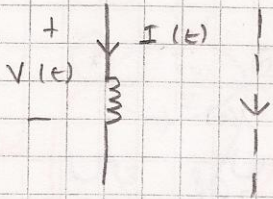 + I (t)
V (t)
−